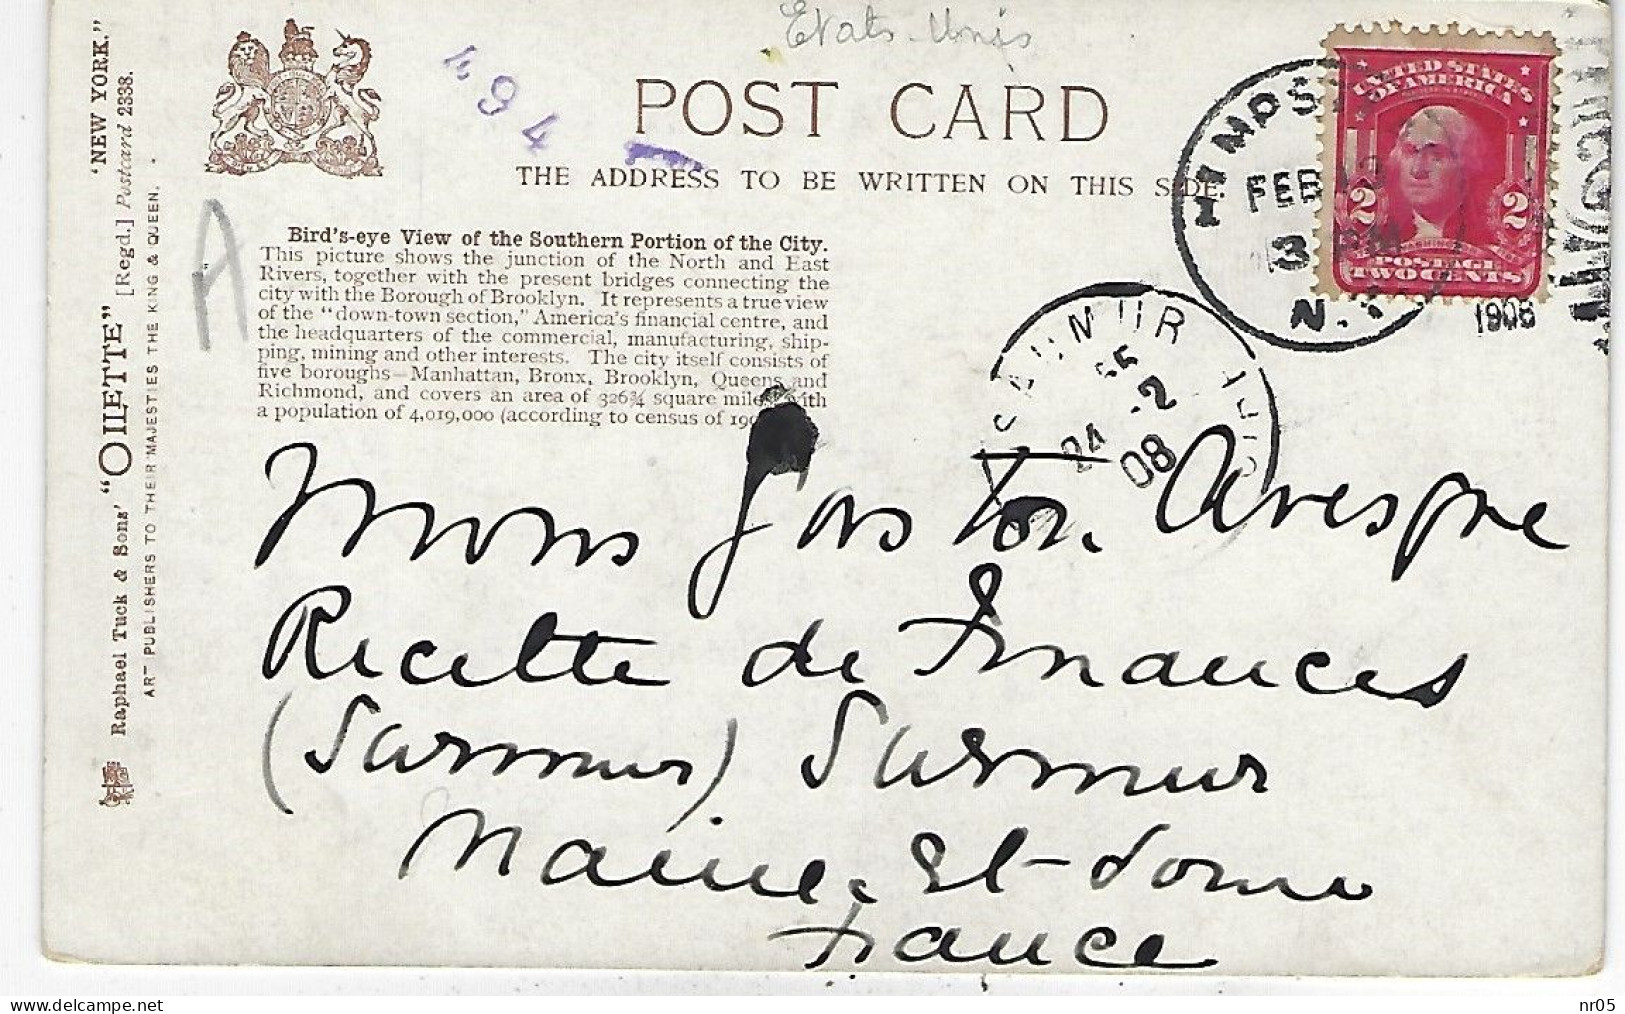 Etats-Unis
494
POST CARD
THE ADDRESS TO BE WRITTEN ON THIS SIDE.
UNITED STATES
OF AMERICA
2 2
POSTAGE
TWO CENTS
FEB
3 PM
N.Y.
1908
"NEW YORK."
Raphael Tuck & Sons' "OILETTE" [Regd.] Postcard 2338.
ART PUBLISHERS TO THEIR MAJESTIES THE KING & QUEEN.
A
Bird's-eye View of the Southern Portion of the City.
This picture shows the junction of the North and East
Rivers, together with the present bridges connecting the
city with the Borough of Brooklyn. It represents a true view
of the "down-town section," America's financial centre, and
the headquarters of the commercial, manufacturing, ship-
ping, mining and other interests. The city itself consists of
five boroughs—Manhattan, Bronx, Brooklyn, Queens and
Richmond, and covers an area of 326¾ square miles with
a population of 4,019,000 (according to census of
SAUMUR
24 -2
08
Mons Gaston
Recette de Finances
(Saumur) Saumur
Maine et Loire
France
nr05